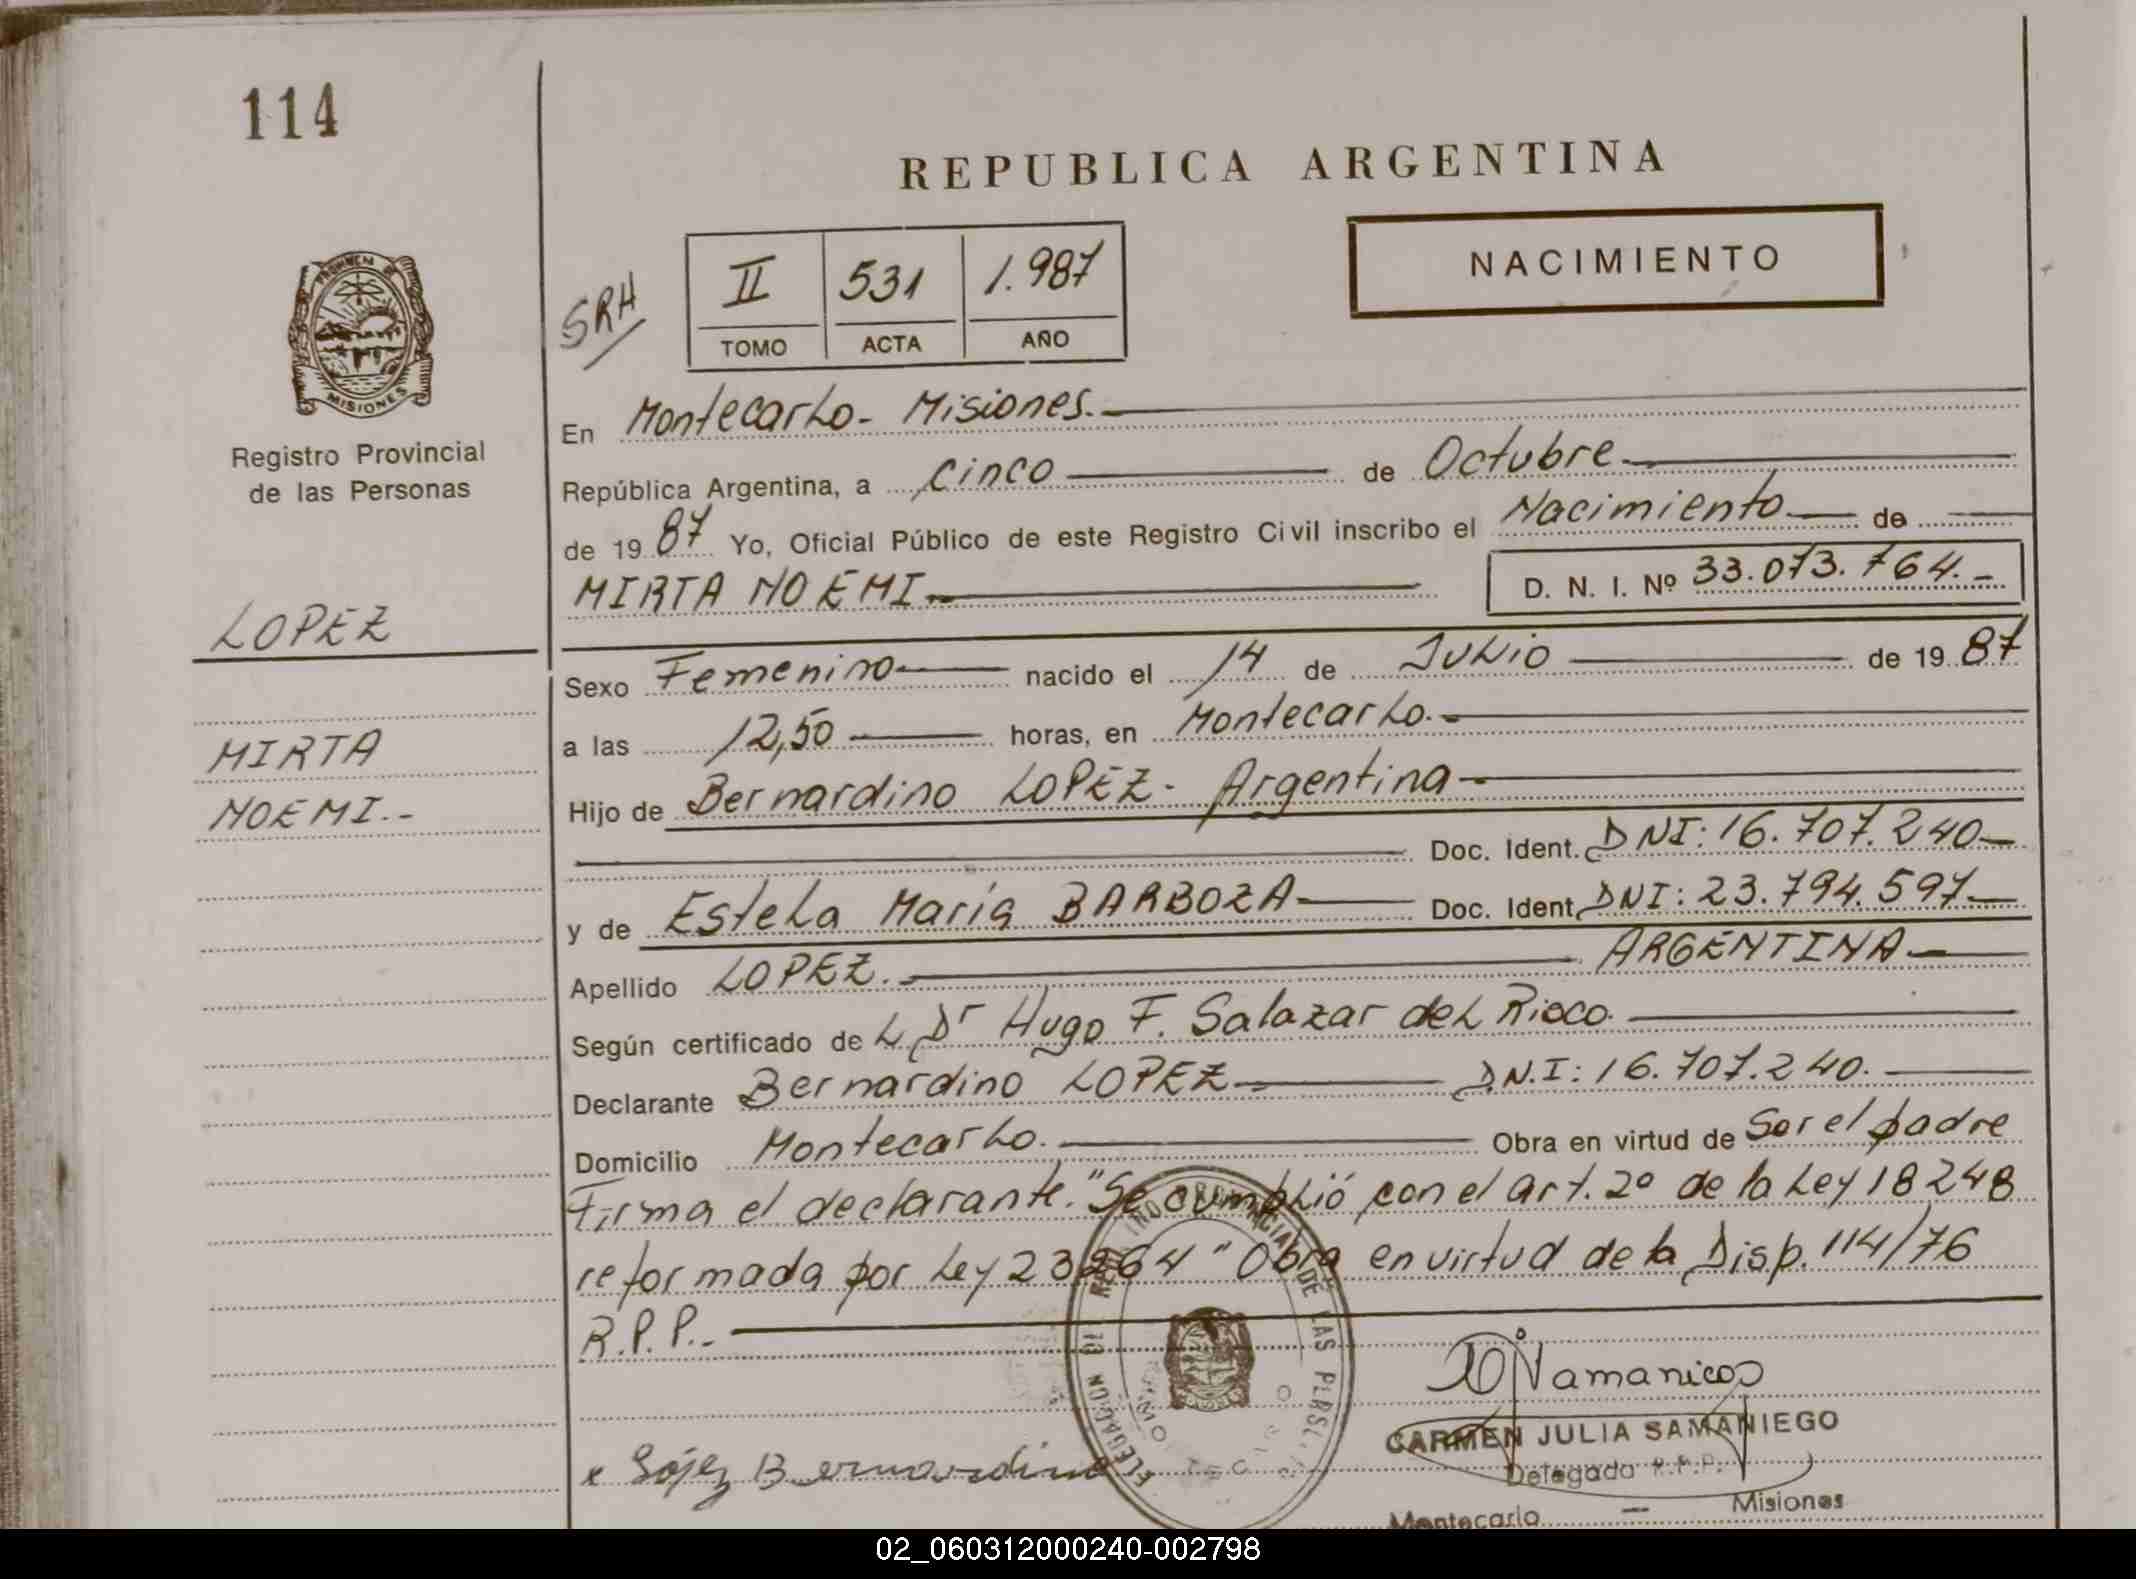 114
REPUBLICA ARGENTINA
NACIMIENTO
SRH
II 531 1.987
TOMO ACTA AÑO
PROVINCIA DE
MISIONES
Registro Provincial
de las Personas
LOPEZ
MIRTA
NOEMI.-
En Montecarlo- Misiones.
República Argentina, a Cinco de Octubre
de 1987 Yo, Oficial Público de este Registro Civil inscribo el Nacimiento de
MIRTA NOEMI D. N. I. Nº 33.073.764.-
Sexo Femenino nacido el 14 de Julio de 1987
a las 12,50 horas, en Montecarlo.-
Hijo de Bernardino LOPEZ- Argentina-
Doc. Ident. DNI: 16.707.240-
y de Estela María BARBOZA Doc. Ident. DNI: 23.794.597
Apellido LOPEZ. ARGENTINA
Según certificado de L Dr Hugo F. Salazar del
Declarante Bernardino LOPEZ D.N.I: 16.707.240.
Domicilio Montecarlo. Obra en virtud de Ser el padre
Firma el declarante. "Se cumplió con el art. 2º de la Ley 18248
reformada por Ley 23264" Obra en virtud de la Disp. 114/76
R.P.P.-
x López Bernardino
CARMEN JULIA SAMANIEGO
Delegada R.P.P.
Montecarlo — Misiones
02_060312000240-002798